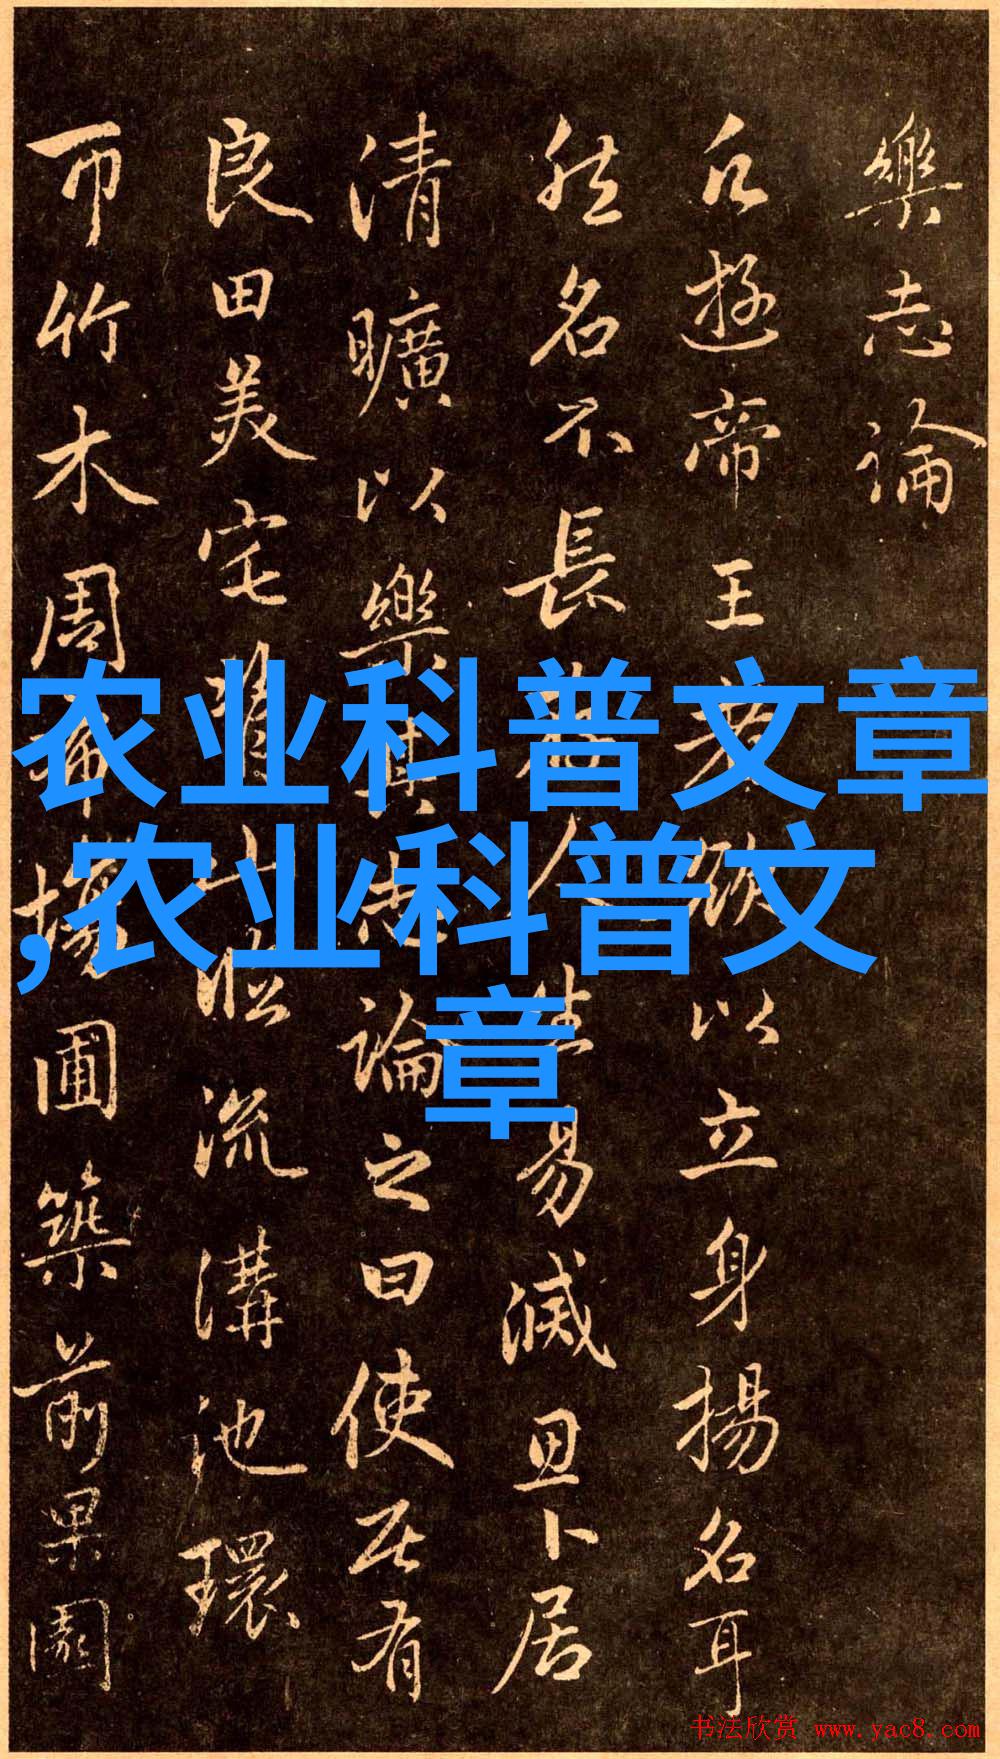 樂志論
凡遊帝王者欲以立身揚名耳
然名不長存人生易滅思卜居
清曠以樂其志論之曰使居有
良田美宅背山臨流溝池環
帀竹木周布場圃築前果園
农业科普文章
,农业科普文
章
书法欣赏 www.yac8.com